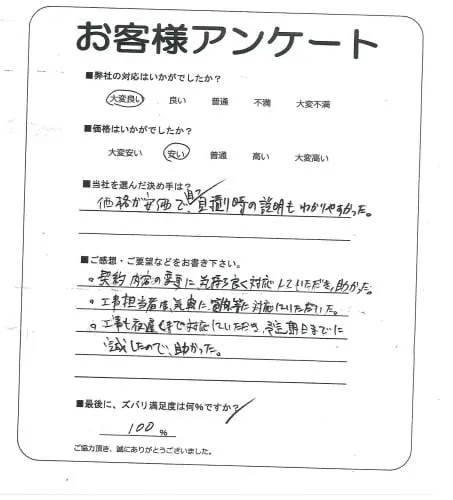 お客様アンケート
■弊社の対応はいかがでしたか？
大変良い 良い 普通 不満 大変不満
■価格はいかがでしたか？
大変安い 安い 普通 高い 大変高い
■当社を選んだ決め手は？
価格が安価で、見積り時の説明もわかりやすかった。
■ご感想・ご要望などをお書き下さい。
。契約内容の変更に気持ち良く対応していただき、助かった。
。工事担当者は、気典に、対応していただいた。
。工事も夜遅くまで対応していただき、予定期日までに
完成したので、助かった。
■最後に、ズバリ満足度は何%ですか？
100 %
ご協力頂き、誠にありがとうございました。